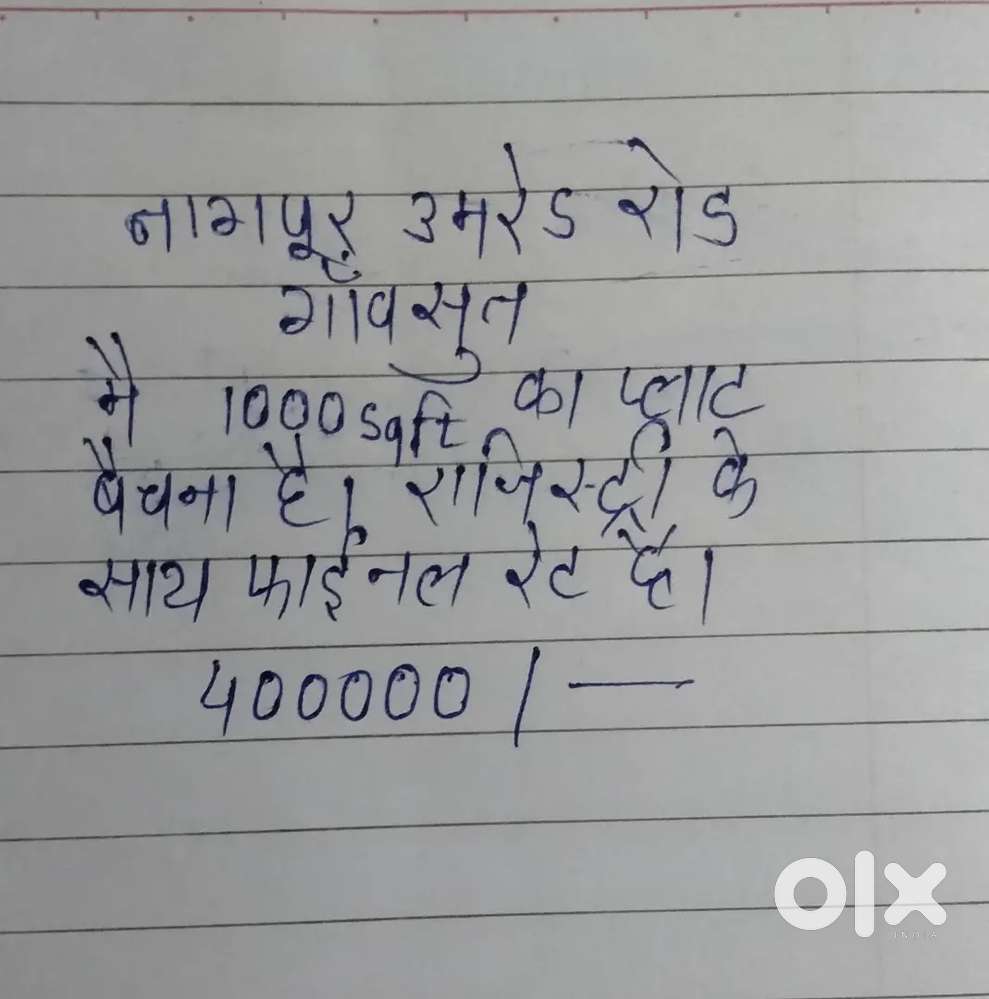 नागपूर उमरेड रोड
गाँवसुत
मै 1000sqft का प्लाट
बैचना है। राजिस्ट्री के
साथ फाईनल रेट है।
400000/—
olx
INDIA